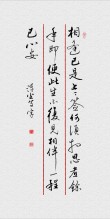 相逢已是上上簽何須相思煮餘
年即便此生不復見相伴一程
已心安